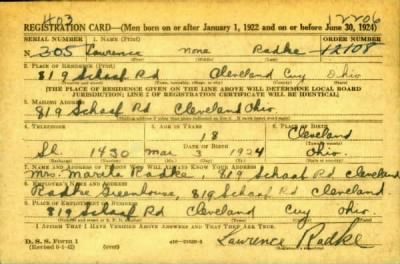 403
12206
REGISTRATION CARD—(Men born on or after January 1, 1922 and on or before June 30, 1924)
SERIAL NUMBER 1. NAME (Print) ORDER NUMBER
N 305 Lawrence none Radke 12108
(First) (Middle) (Last)
2. PLACE OF RESIDENCE (Print)
819 Schaaf Rd Cleveland Cuy Ohio
(Number and street) (Town, township, village, or city) (County) (State)
[THE PLACE OF RESIDENCE GIVEN ON THE LINE ABOVE WILL DETERMINE LOCAL BOARD
JURISDICTION; LINE 2 OF REGISTRATION CERTIFICATE WILL BE IDENTICAL]
3. MAILING ADDRESS
819 Schaaf Rd Cleveland Ohio
[Mailing address if other than place indicated on line 2. If same insert word same]
4. TELEPHONE 5. AGE IN YEARS 6. PLACE OF BIRTH
18 Cleveland
DATE OF BIRTH
Sh. 1430 Mar 3 1924 Ohio
7. NAME AND ADDRESS OF PERSON WHO WILL ALWAYS KNOW YOUR ADDRESS
Mrs. Martha Radke, 819 Schaaf Rd Cleveland
8. EMPLOYER'S NAME AND ADDRESS
Radke Greenhouse, 819 Schaaf Rd Cleveland
9. PLACE OF EMPLOYMENT OR BUSINESS
819 Schaaf Rd Cleveland Cuy Ohio
I AFFIRM THAT I HAVE VERIFIED ABOVE ANSWERS AND THAT THEY ARE TRUE.
D. S. S. FORM 1
Lawrence Radke